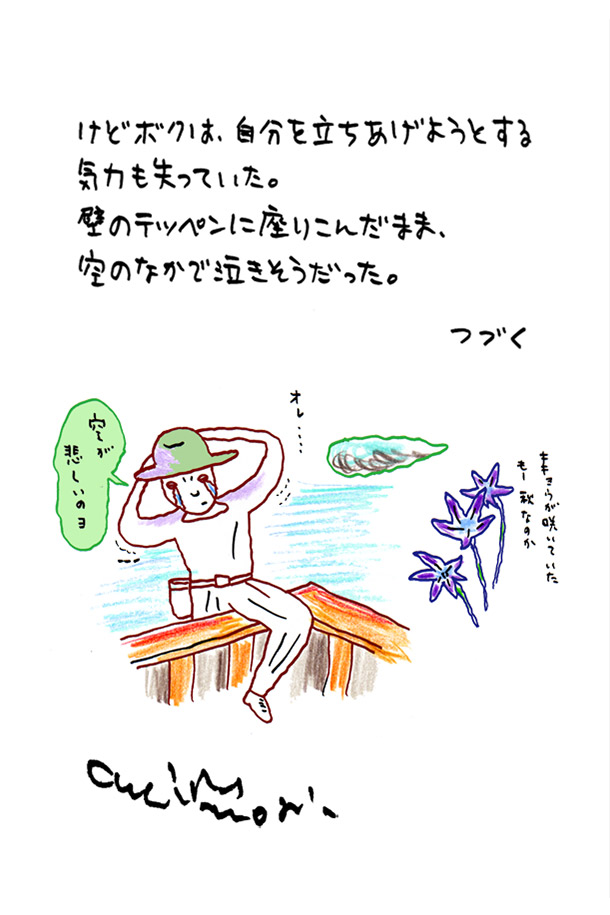 けどボクは、自分を立ちあげようとする
気力も失っていた。
壁のテッペンに座りこんだまま、
空のなかで泣きそうだった。
つづく
オレ....
空が
悲しいのヨ
キキョウが咲いていた
もー秋なのか